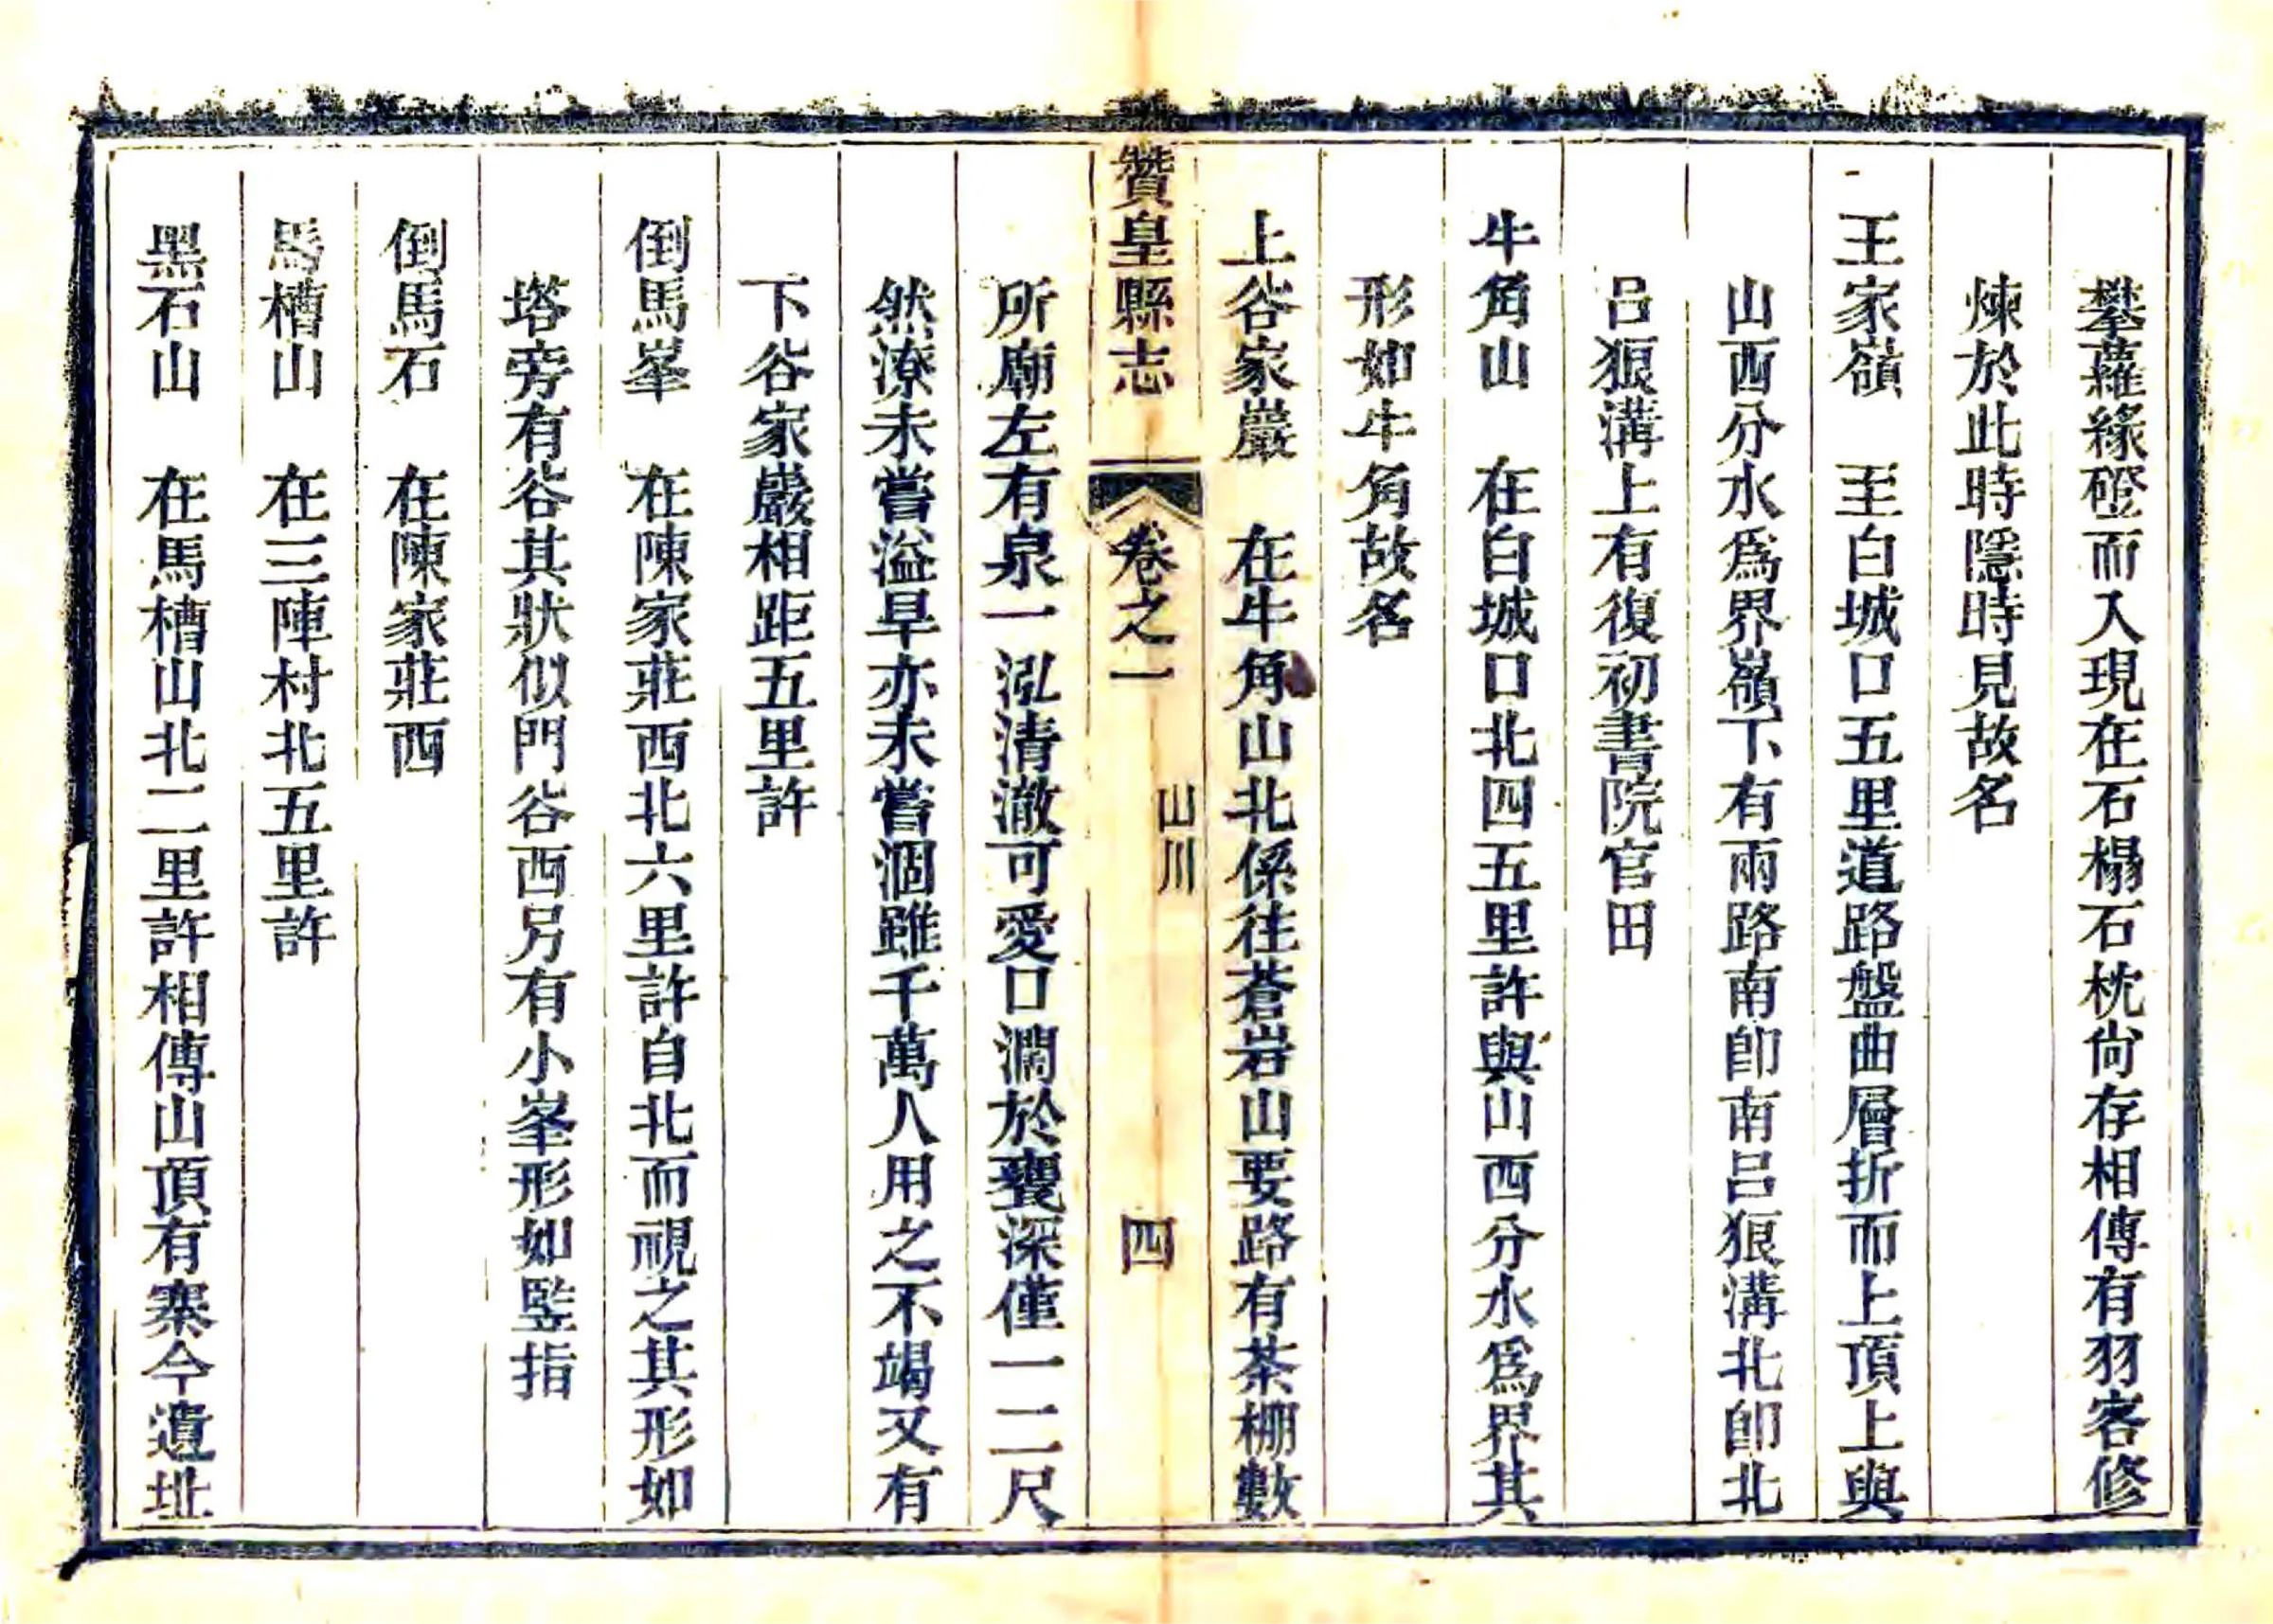 攀蘿緣磴而入現在石榻石枕尙存相傳有羽客修
煉於此時隱時見故名
王家嶺　至白城口五里道路盤曲層折而上頂上與
山西分水爲界嶺下有兩路南卽南呂狼溝北卽北
呂狼溝上有復初書院官田
牛角山　在白城口北四五里許與山西分水爲界其
形如牛角故名
上谷家巖　在牛角山北係往蒼岩山要路有茶棚數
贊皇縣志　卷之一　山川　四
所廟左有泉一泓清澈可愛口濶於甕深僅一二尺
然潦未嘗溢旱亦未嘗涸雖千萬人用之不竭又有
下谷家巖相距五里許
倒馬峯　在陳家莊西北六里許自北而視之其形如
塔旁有谷其狀似門谷西另有小峯形如監指
倒馬石　在陳家莊西
馬槽山　在三陣村北五里許
黑石山　在馬槽山北二里許相傳山頂有寨今遺址